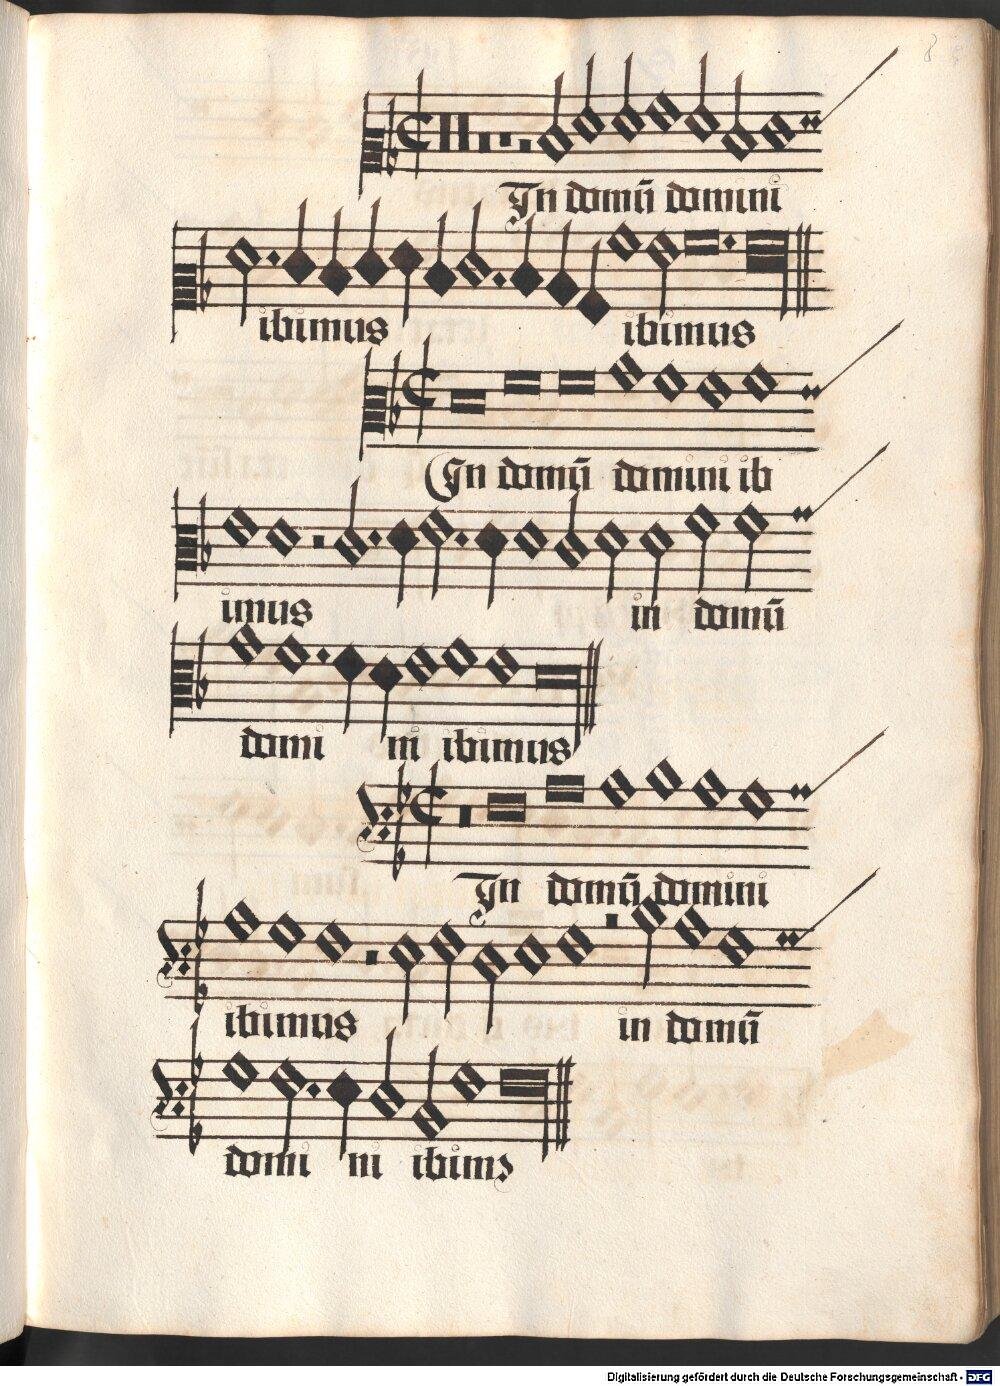 8
In domū domini
ibimus ibimus
In domū domini ib
imus in domū
domi ni ibimus
In domū domini
ibimus in domū
domi ni ibimꝰ
Digitalisierung gefördert durch die Deutsche Forschungsgemeinschaft - DFG